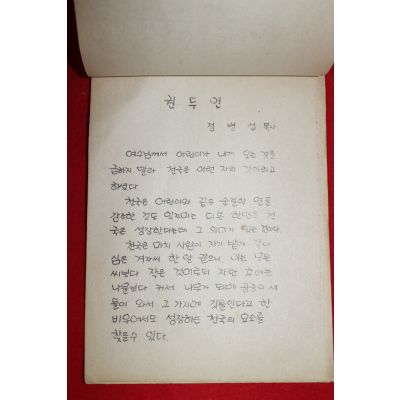 권두언
정 병 섭 목사
예수님께서 어린이가 내게 오는 것을
금하지 말라 천국은 이런 자의 것이라고
하셨다.
천국은 어린이와 같은 순진한 면을
강조한 것도 있지마는 다른 한면은 천
국은 성장한다는데 그 의미가 있는 것이다.
천국은 마치 사람이 자기 밭에 갖다
심은 겨자씨 한 알 같으니 이는 모든
씨보다 작은 것이로되 자란 후에는
나물보다 커서 나무가 되매 공중의 새
들이 와서 그 가지에 깃들인다고 한
비유에서도 성장하는 천국의 요소를
찾을수 있다.